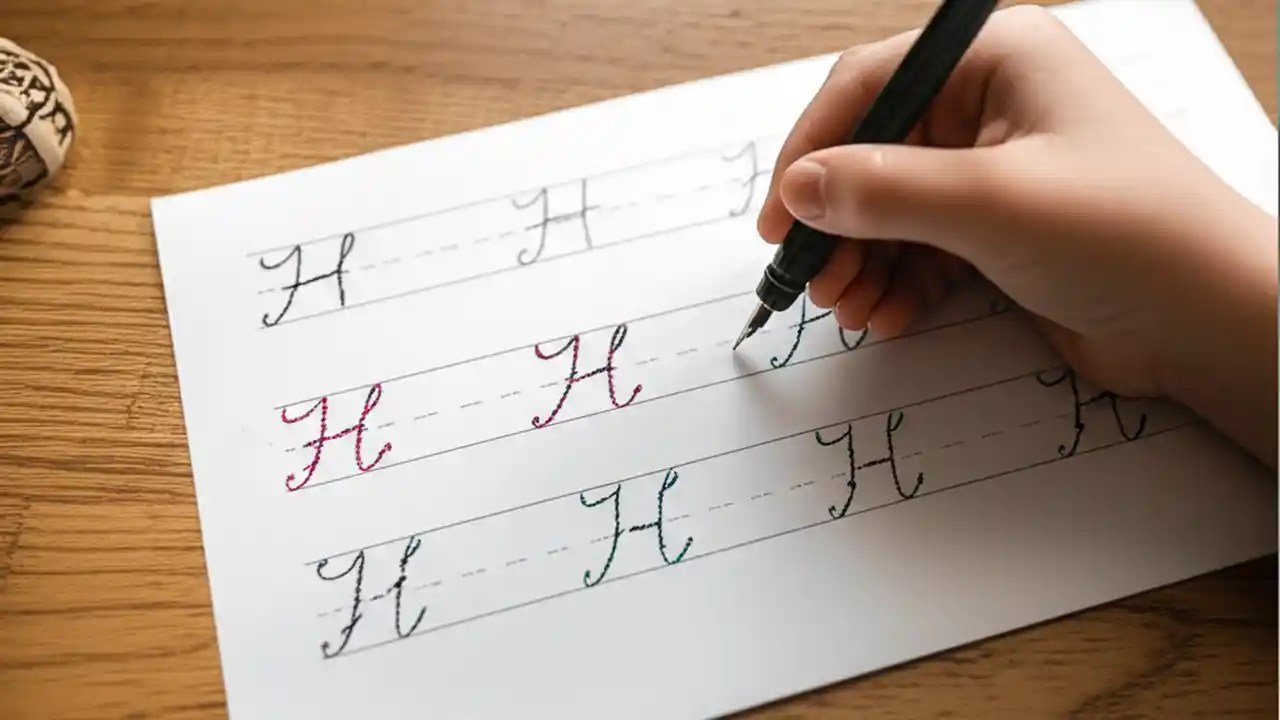 H H H
H H H
H H H H